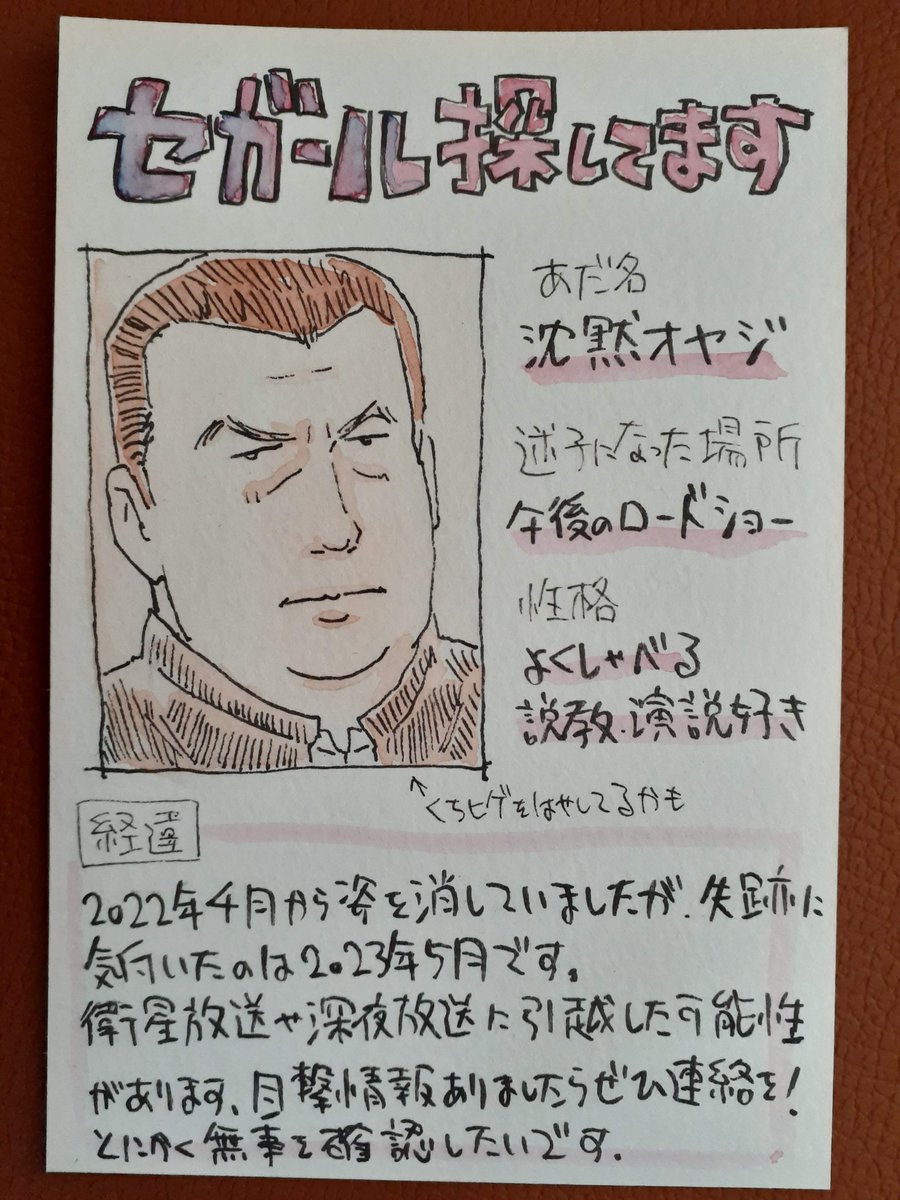 セガール探してます
あだ名
沈黙オヤジ
迷子になった場所
午後のロードショー
性格
よくしゃべる
説教・演説好き
↑くちヒゲをはやしてるかも
経過
2022年4月から姿を消していましたが、失跡に
気付いたのは2023年5月です。
衛星放送や深夜放送に引越した可能性
があります、目撃情報ありましたらぜひ連絡を!
とにかく無事を確認したいです.